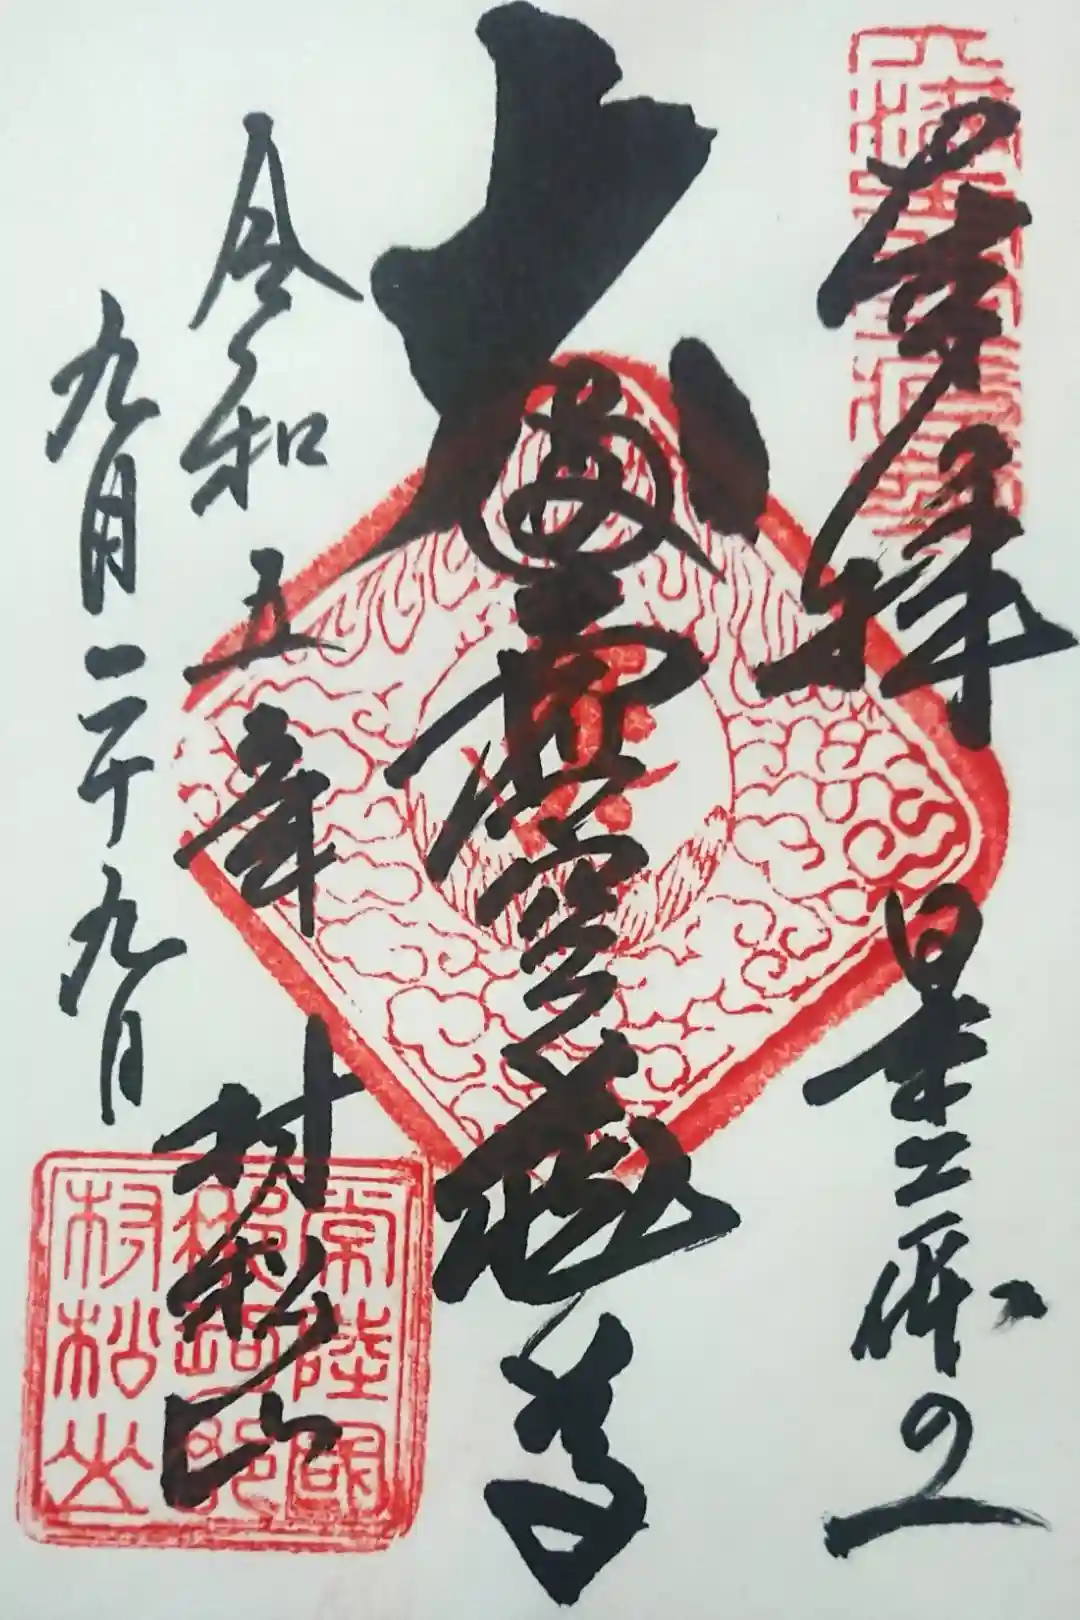 奉拝　日本三体の一
大満虚空蔵尊
令和五年　村松山
九月二十九日
常陸國
那珂郡
村松山